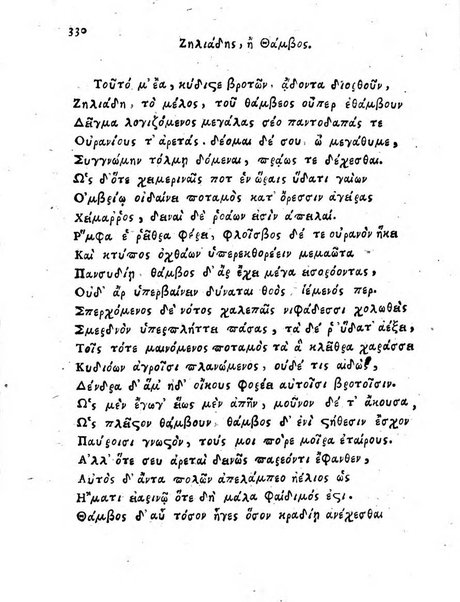 330
Ζηλιάδης, ἢ Θάμβος.
Τοῦτό μ' ἔα, κύδιςε βροτῶν, ᾄδοντα διοχθοῦν,
Ζηλιάδη, τὸ μέλος, τοῦ θάμβεος οὗπερ ἐθάμβουν
Δεῖγμα λογιζόμενος μεγάλας σέο παντοδαπάς τε
Οὐρανίους τ' ἀρετάς· δέομαι δέ σου ὦ μεγάθυμε,
Συγγνώμην τόλμῃ δόμεναι, πρᾴως τε δέχεσθαι.
Ὡς δ' ὅτε χειμεριναῖς ποτ' ἐν ὥραις ὕδατι γαίων
Ὀμβρίῳ οἰδαίνει ποταμὸς κατ' ὄρεσσιν ἀγείρας
Χείμαῤῥος, δειναὶ δὲ ῥοάων εἰσὶν ἀπειλαί.
Ῥίμφα ἑ ῥεῖθρα φέρει, φλοῖσβος δέ τε οὐρανὸν ἥκει
Καὶ κτύπος ὀχθάων ὑπερεκθορέειν μεμαῶτα
Πανσυδίῃ· θάμβος δ' ἂρ ἔχει μέγα εἰσορόωντας,
Οὐδ' ἂρ ὑπερβαίνειν δύναται θοὸς ἱέμενός περ.
Σπερχόμενος δὲ νότος χαλεπαῖς νιφάδεσσι χολωθεὶς
Σμερδνὸν ὑπερπλήττει πάσας, τὰ δέ ῥ' ὕδατ' ἀέξει,
Τοῖς τότε μαινόμενος ποταμὸς τὰ ἃ κλεῖθρα χαράσσει
Κυδιόων ἀγροῖσι πλανώμενος, οὐδέ τις αἰδώς,
Δένδρα δ' ἅμ' ἠδ' οἴκους φορέει αὐτοῖσι βροτοῖσιν.
Ὣς μὲν ἔγωγ' εἵως μὲν ἀπῆν, μοῦνον δέ τ' ἄκουσα,
Ὡς πλεῖστον θάμβουν· θάμβος δ' ἐνὶ ςήθεσιν ἔσχον
Παύροισι γνωςόν, τούς μοι πόρε μοῖρα ἑταίρους.
Ἀλλ' ὅτε σευ ἀρεταὶ δεινῶς παρεόντι ἔφανθεν,
Αὐτὸς δ' ἄντα πολῶν ἀπελάμπεο ἠέλιος ὡς
Ἤματι εἰαρινῷ ὅτε δὴ μάλα φαίδιμός ἐςι.
Θάμβος δ' αὖ τόσον ἦγες ὅσον κραδίῃ ἀνέχεσθαι